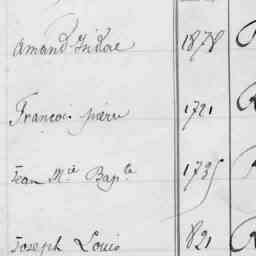 Amand Isidore 1878
François pierre 1721
Jean Mie Bapte 1735
Joseph Louis 1821